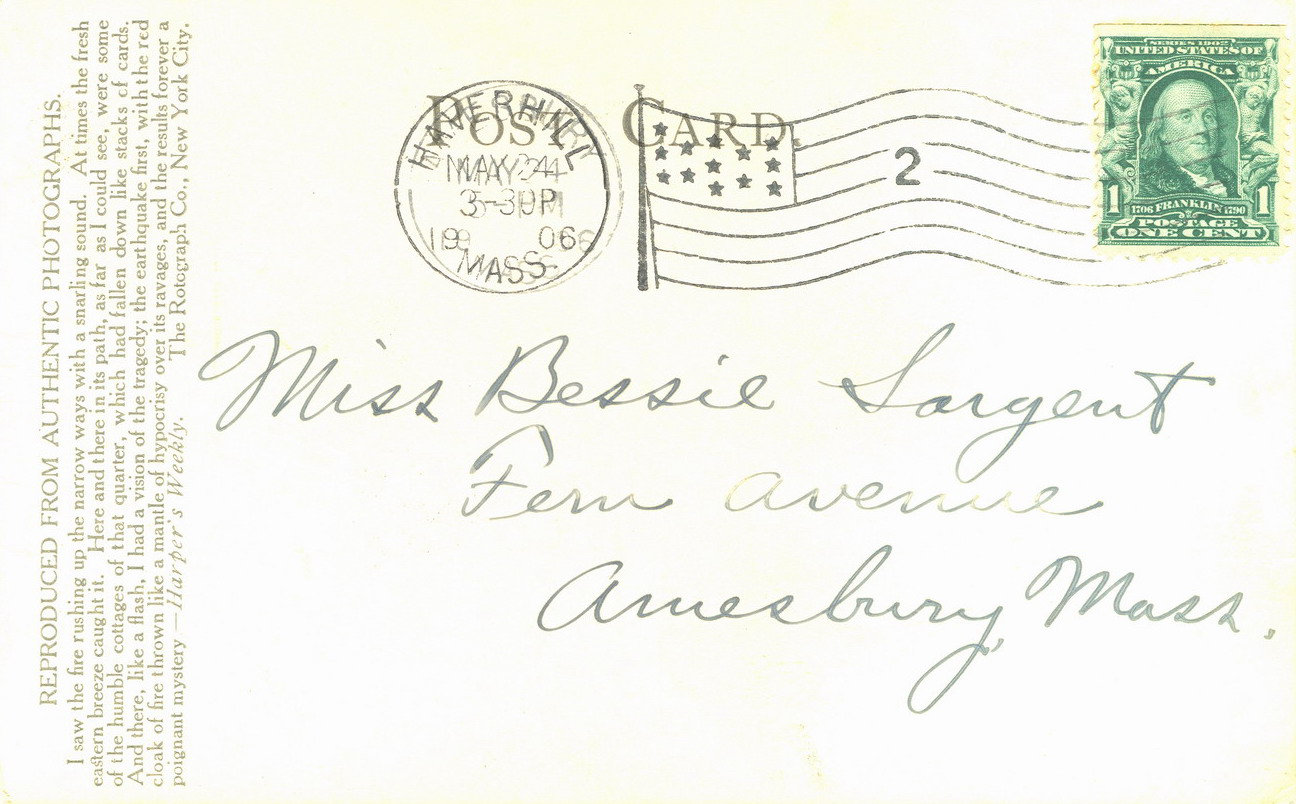 REPRODUCED FROM AUTHENTIC PHOTOGRAPHS.
I saw the fire rushing up the narrow ways with a snarling sound. At times the fresh
eastern breeze caught it. Here and there in its path, as far as I could see, were some
of the humble cottages of that quarter, which had fallen down like stacks of cards.
And there, like a flash, I had a vision of the tragedy; the earthquake first, with the red
cloak of fire thrown like a mantle of hypocrisy over its ravages, and the results forever a
poignant mystery — Harper's Weekly. The Rotograph Co., New York City.
POST CARD.
HAVERHILL
MAY 24
3-30P
1906
MASS.
2
SERIES 1902
UNITED STATES OF
AMERICA
1706 FRANKLIN 1790
1 POSTAGE 1
ONE CENT
Miss Bessie Sargent
Fern Avenue
Amesbury, Mass.